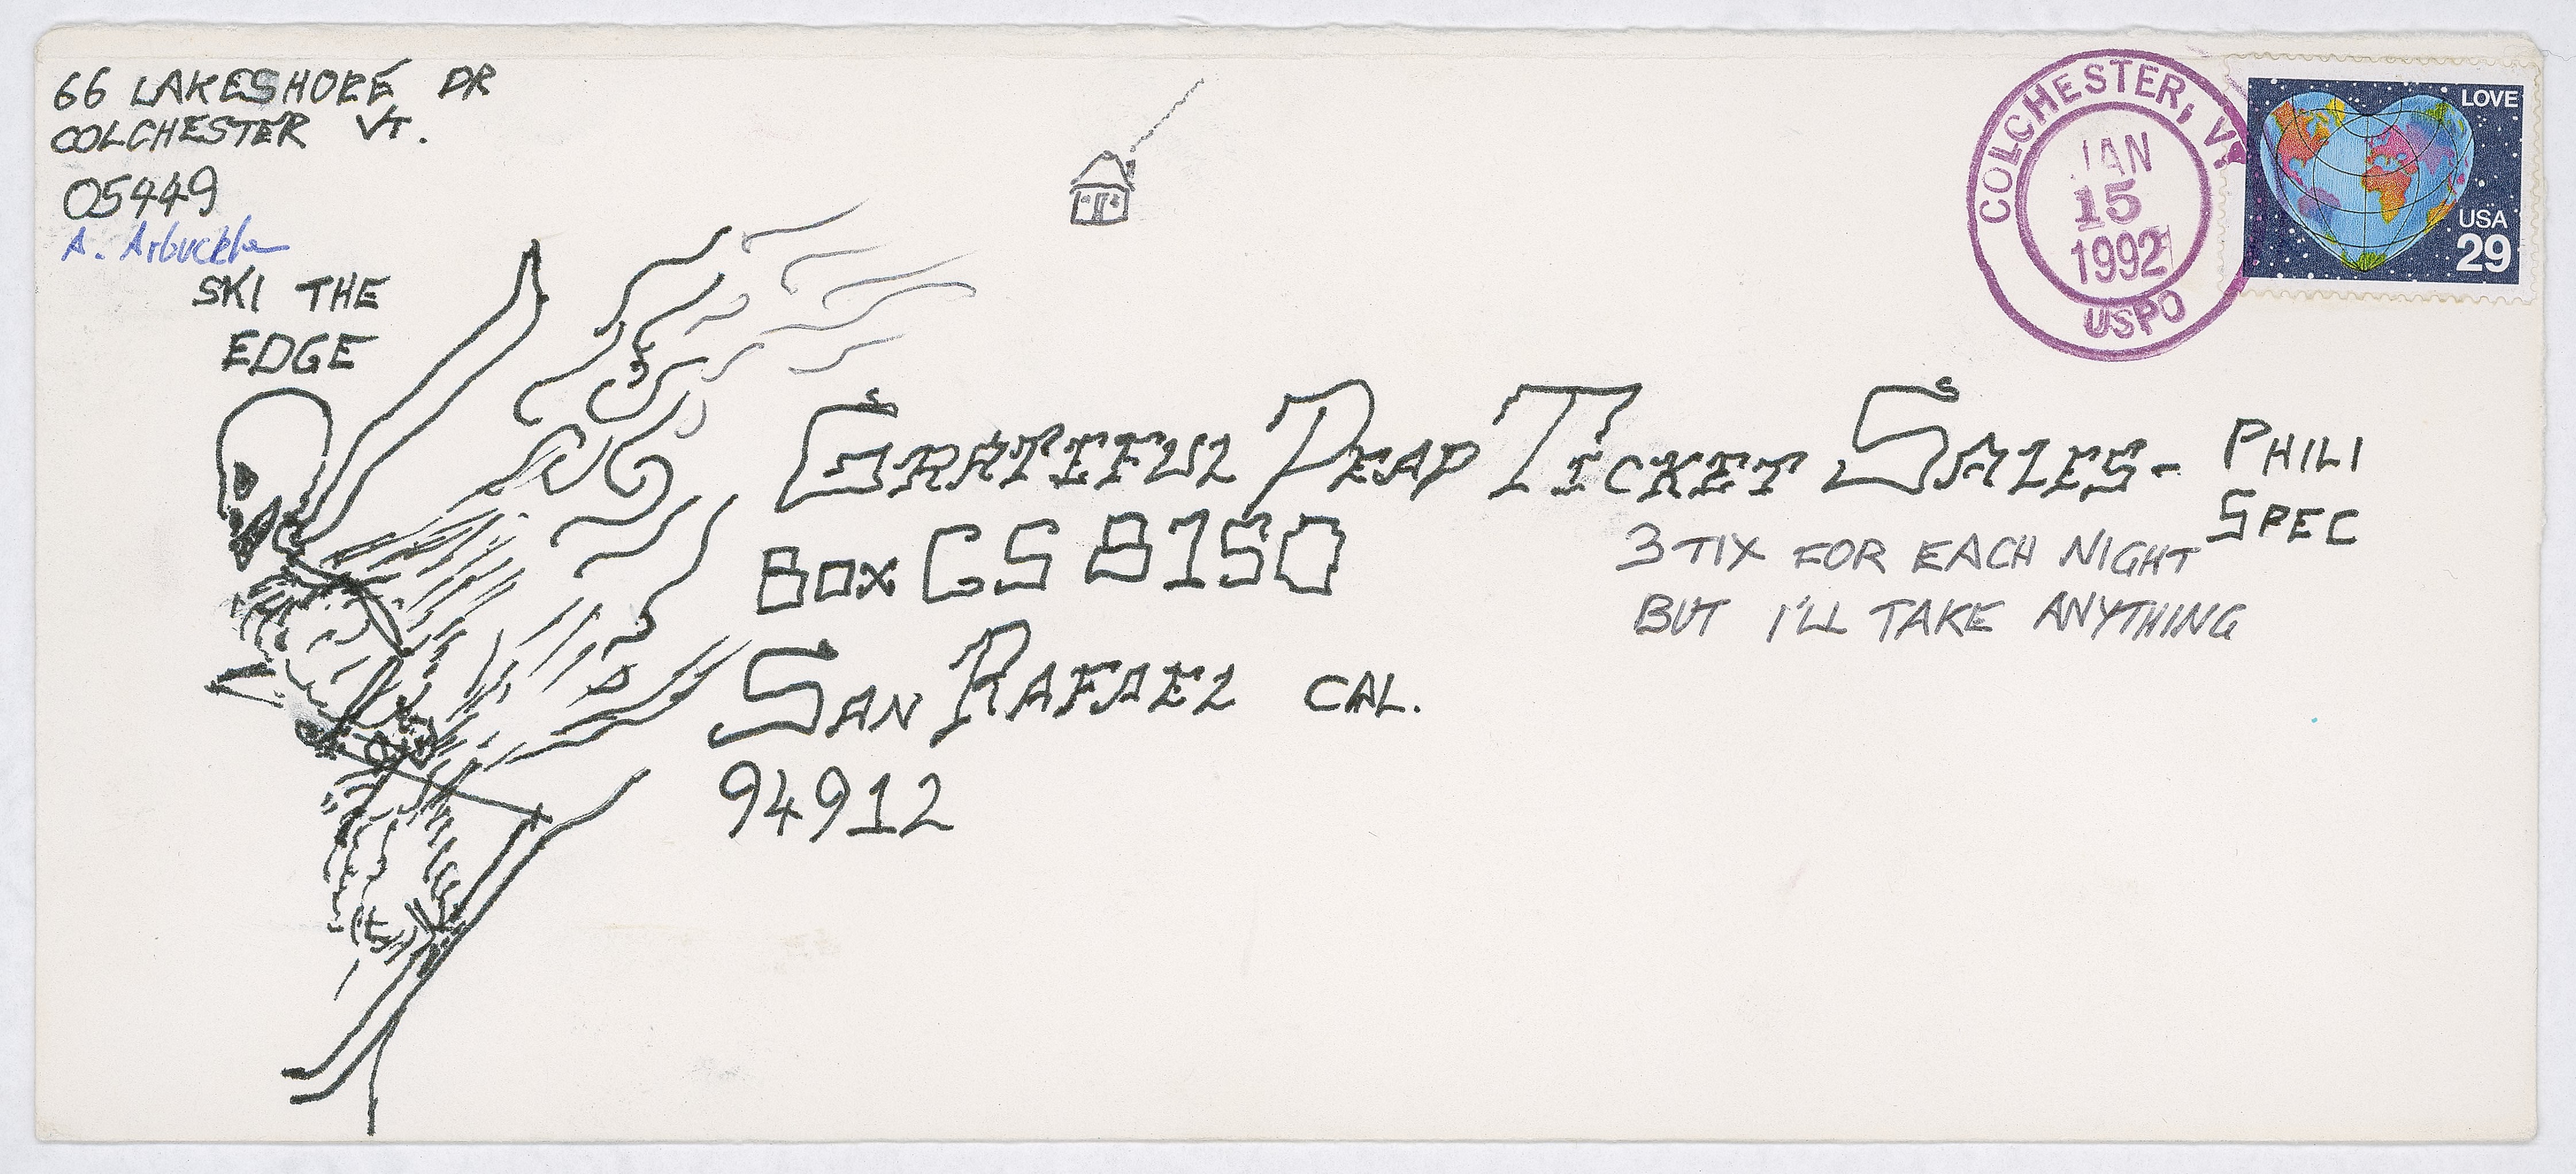 66 LAKESHORE DR
COLCHESTER VT.
05449
A. Arbuckle
SKI THE
EDGE
COLCHESTER, VT
JAN
15
1992
USPO
LOVE
USA
29
GRATEFUL DEAD TICKET SALES- PHILI
SPEC
BOX CS 8150
3 TIX FOR EACH NIGHT
BUT I'LL TAKE ANYTHING
SAN RAFAEL CAL.
94912